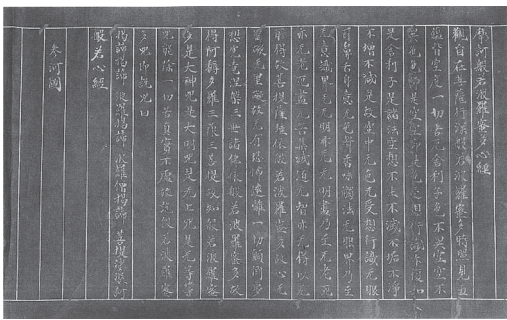 摩訶般若波羅蜜多心經
觀自在菩薩行深般若波羅蜜多時照見五
蘊皆空度一切苦厄舍利子色不異空空不
異色色即是空空即是色受想行識亦復如
是舍利子是諸法空想不生不滅不垢不淨
不增不減是故空中无色无受想行識无眼
耳鼻舌身意无色聲香味觸法无眼界乃至
无意識界无无明亦无无明盡乃至无老死
亦无老死盡无苦集滅道无智亦无得以无
所得故菩提薩埵依般若波羅蜜多故心无
罣礙无罣礙故无有恐怖遠離一切顛倒夢
想究竟涅槃三世諸佛依般若波羅蜜多故
得阿耨多羅三藐三菩提故知般若波羅蜜
多是大神咒是大明咒是无上咒是无等等
咒能除一切苦真實不虛故說般若波羅蜜
多咒即說咒曰
揭諦揭諦 波羅揭諦 波羅僧揭諦 菩提莎婆訶
般若心經
河間